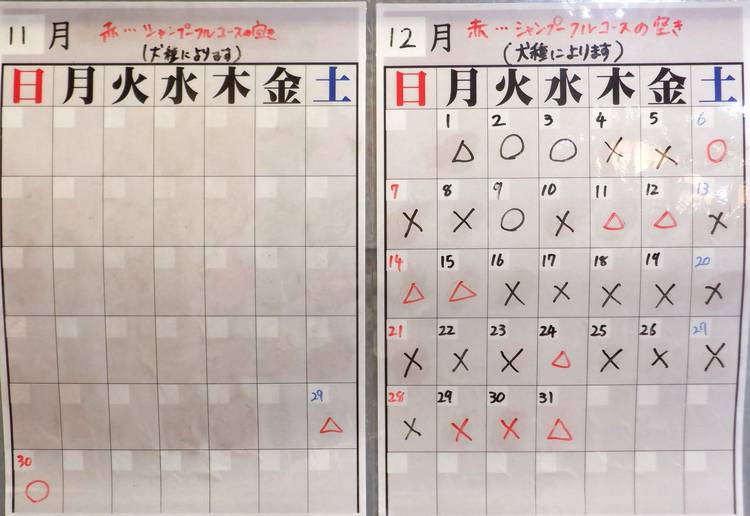 11月 赤…シャンプーフルコースの空き
(犬種によります)
日 月 火 水 木 金 土
29
△
30
○
12月 赤…シャンプーフルコースの空き
(犬種によります)
日 月 火 水 木 金 土
1 2 3 4 5 6
△ ○ ○ × × ○
7 8 9 10 11 12 13
× × ○ × △ △ ×
14 15 16 17 18 19 20
△ △ × × × × ×
21 22 23 24 25 26 27
× × × △ × × ×
28 29 30 31
× × × △